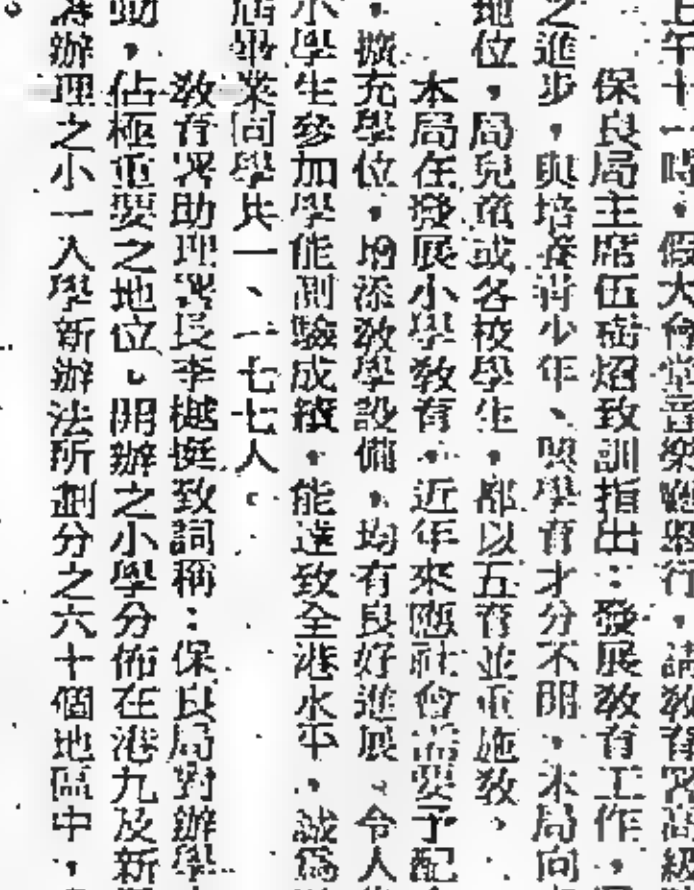 上午十一時，假大會堂音樂廳舉行，請教育署高級
保良局主席伍 炤致訓指出：發展教育工作，
之進步，與培養青少年、興學育才分不開，本局向
地位，局兒童或各校學生，都以五育並重施教，
本局在發展小學教育，近年來應社會需要予配
，擴充學位，增添教學設備，均有良好進展。令人
小學生參加學能測驗成績，能達致全港水平，誠為
屆畢業同學共一、一七七人。
教育署助理署長李樾挺致詞稱：保良局對辦學
助，佔極重要之地位。開辦之小學分佈在港九及新
辦理之小一入學新辦法所劃分之六十個地區中，
。